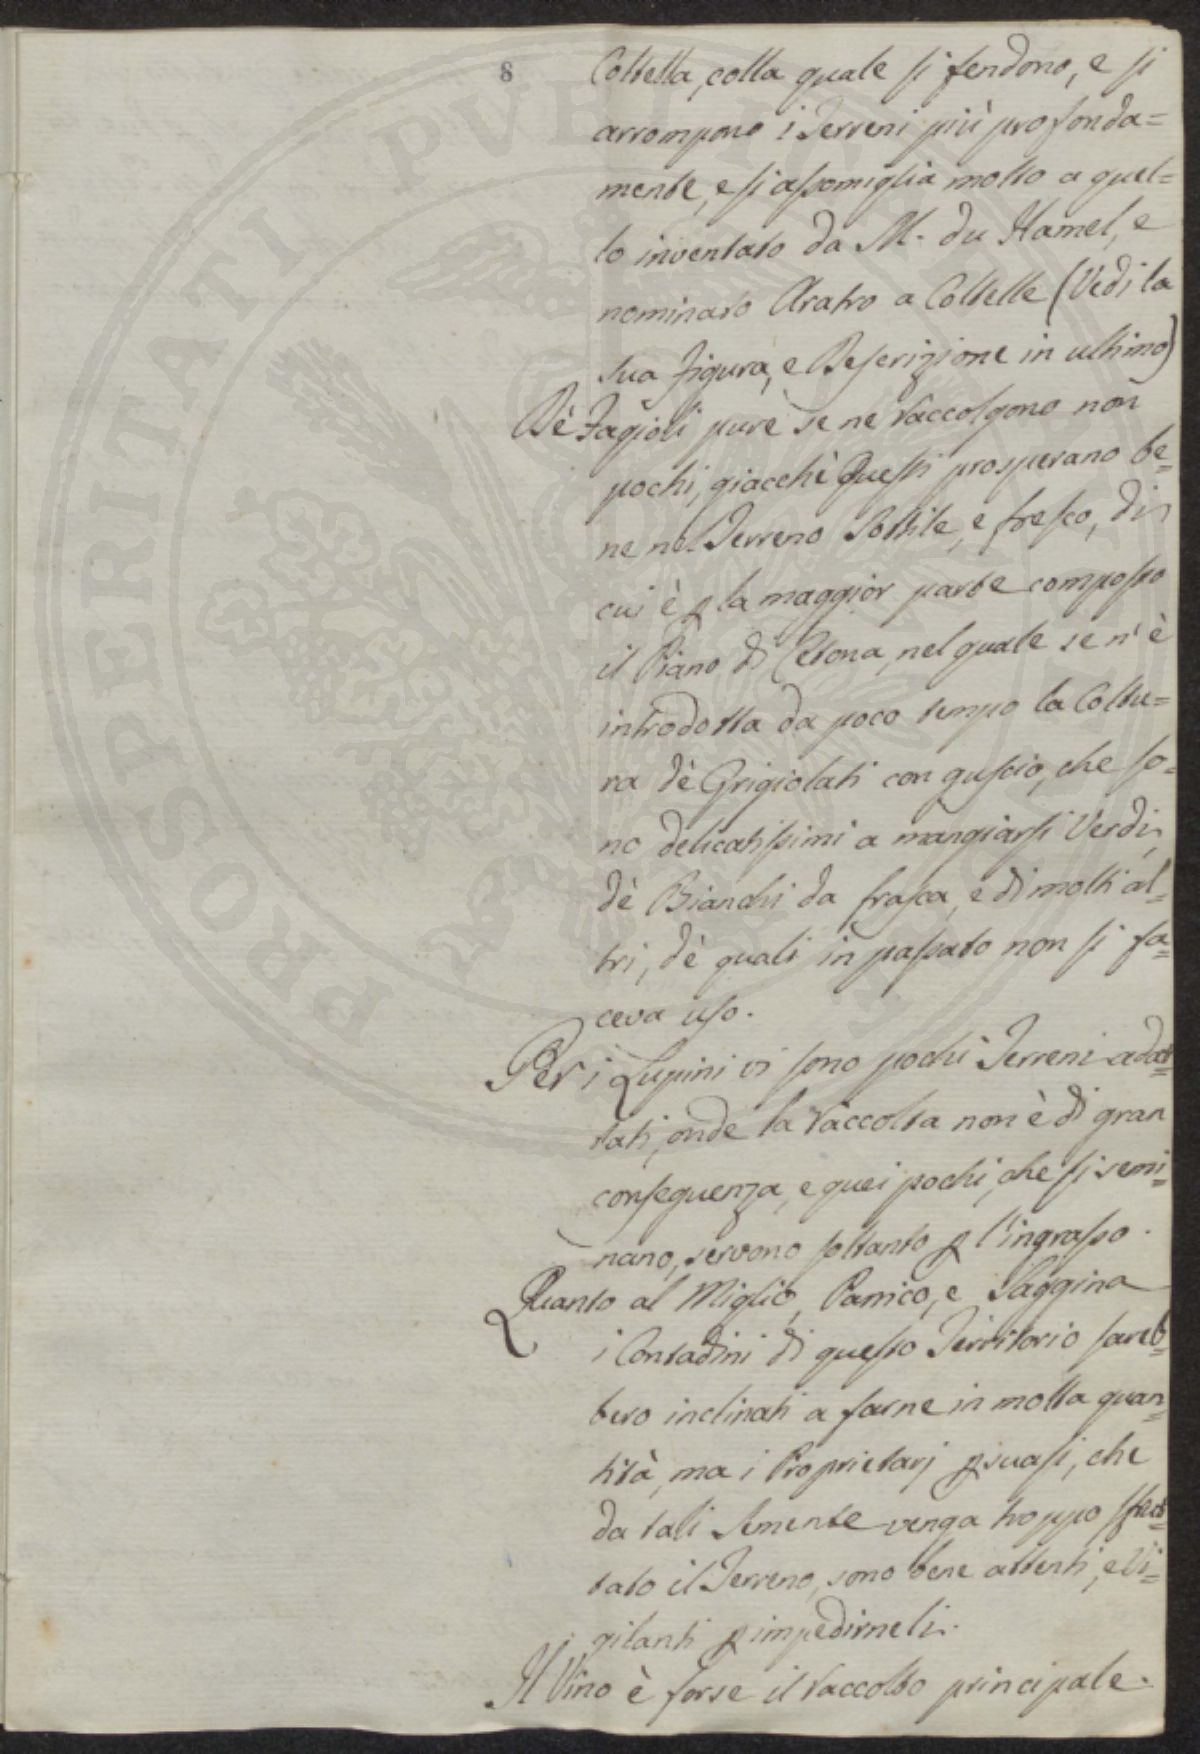 8
Coltella, colla quale si fendono, e si
arrompono i Terreni più profonda=
mente, e si assomiglia molto a quel=
lo inventato da M. du Hamel, e
nominato Aratro a Coltelle (Vedi la
sua figura, e Descrizione in ultimo)
Dè Fagioli pure se ne raccolgono non
pochi, giacchè Questi prosperano be=
ne nel Terreno Sottile, e fresco, di
cui è p la maggior parte composto
il Piano di Cetona, nel quale se n'è
introdotta da poco tempo la Coltu=
ra dè Grigiolati con guscio, che so=
no delicatissimi a mangiarsi Verdi,
dè Bianchi da frasca, e di molti al=
tri, dè quali in passato non si fa=
ceva uso.
Per i Lupini vi sono pochi Terreni adat=
tati, onde la raccolta non è di gran
conseguenza, e quei pochi, che si semi=
nano, servono soltanto p l'ingrasso.
Quanto al Miglio, Panico, e Saggina
i Contadini di questo Territorio sareb=
bero inclinati a farne in molta quan=
tità, ma i Proprietarj psuasi, che
da tali Semente venga troppo sfrut=
tato il Terreno, sono bene attenti, e Vi=
gilanti p impedirneli.
Il Vino è forse il raccolto principale.
PROSPERITATI PVBLICAE